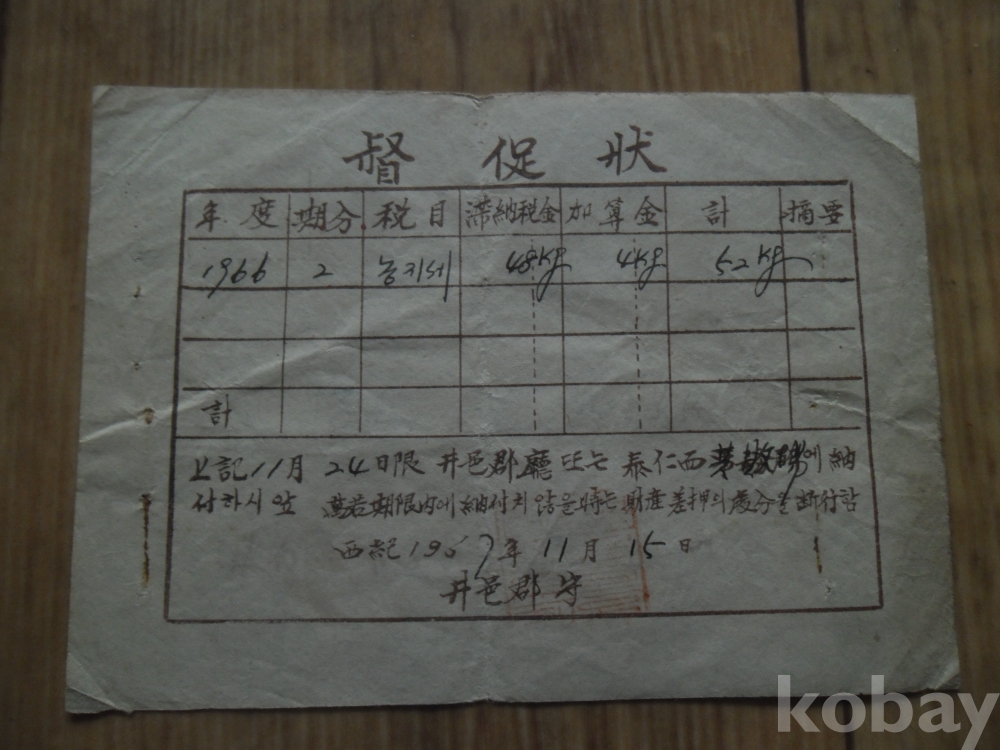 督促狀
年度 期分 税目 滞納税金 加算金 計 摘要
1966 2 농지세 48kg 4kg 52kg
計
上記 11月 24日限 井邑郡廳 또는 泰仁面 에 納
付하시앞 萬若期限内에納付치않을時는財産差押의處分을断行함
西紀 1967年 11月 15日
井邑郡守
kobay